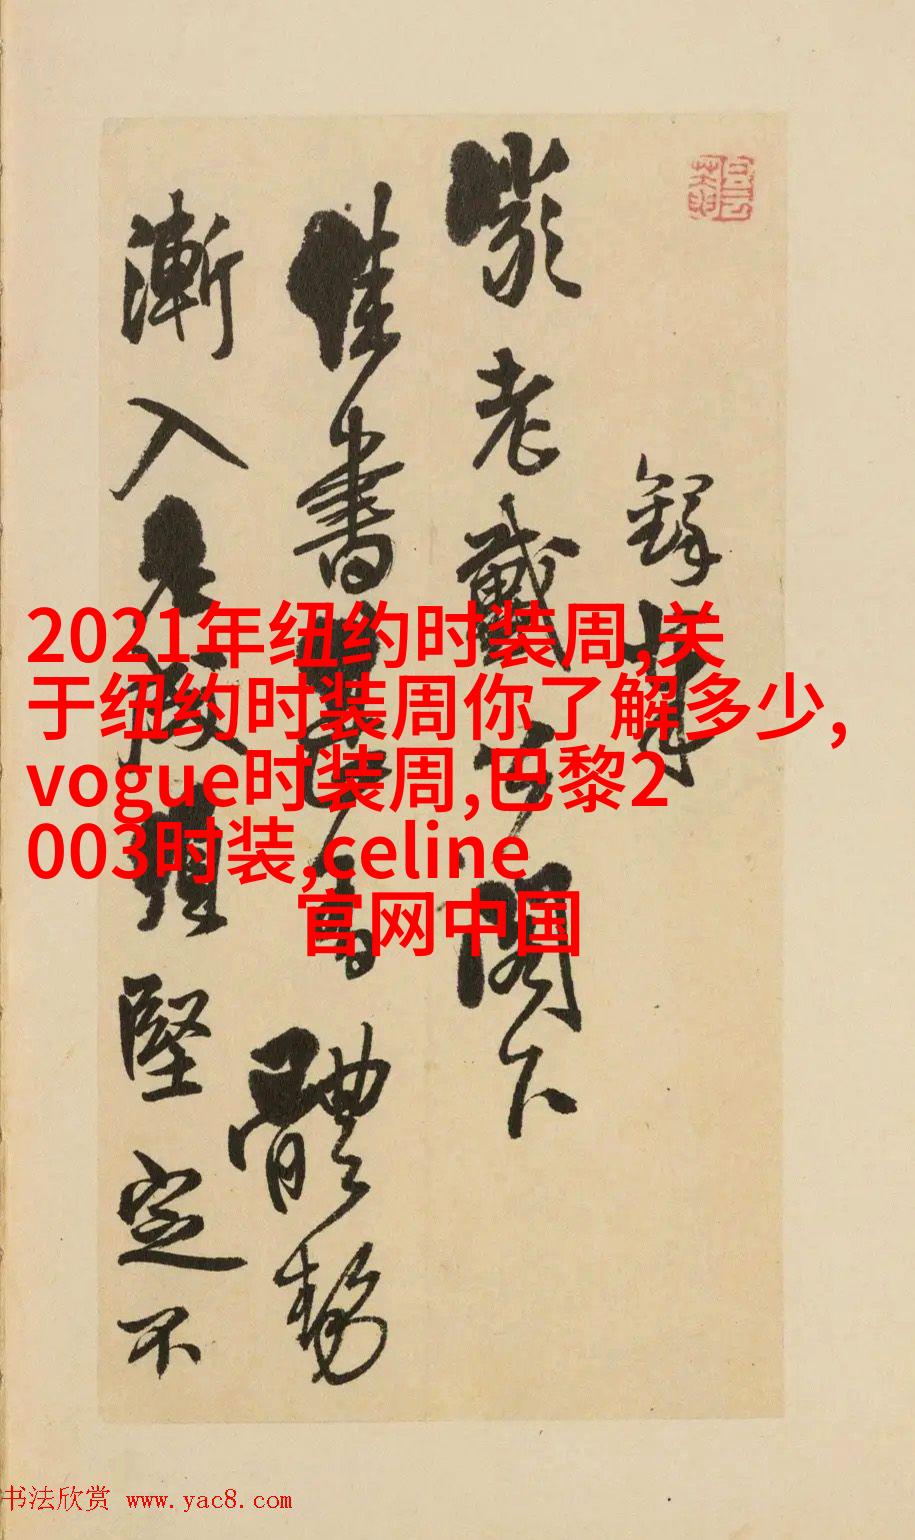 2021年纽约时装周,关
于纽约时装周你了解多少,
vogue时装周,巴黎2
003时装,celine
官网中国
鐸
老戴公閣下
佳書體勢
漸入堅定不
书法欣赏 www.yac8.com